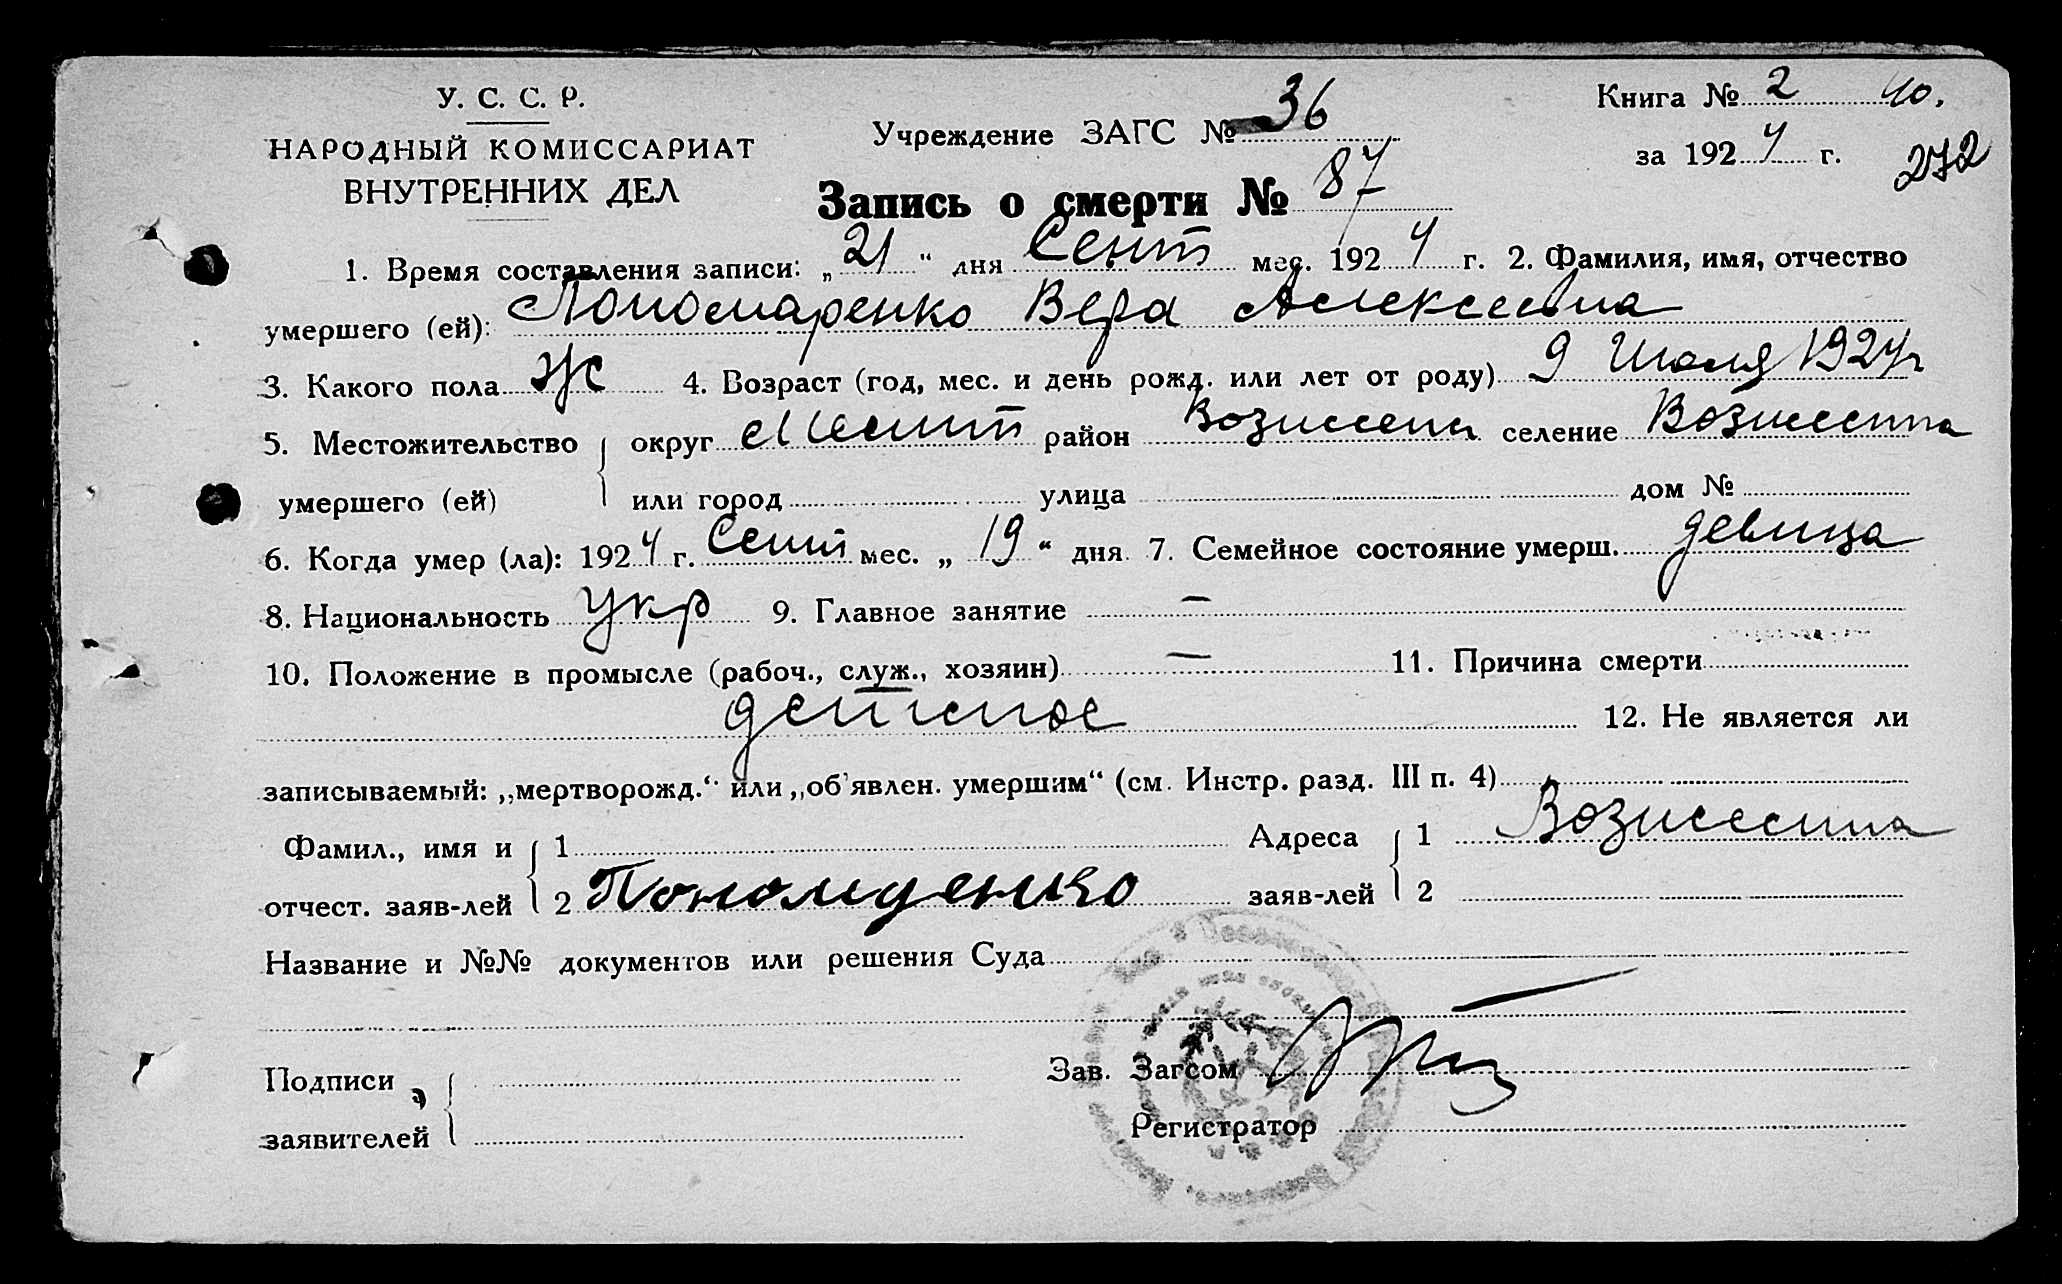 У. С. С. Р.
НАРОДНЫЙ КОМИССАРИАТ
ВНУТРЕННИХ ДЕЛ
Учреждение ЗАГС № 36
Книга № 2 40.
за 1924 г. 272
Запись о смерти № 87
1. Время составления записи: „21“ дня Сент мес. 1924 г. 2. Фамилия, имя, отчество
умершего (ей): Пономаренко Вера Алексеевна
3. Какого пола Ж 4. Возраст (год, мес. и день рожд. или лет от роду) 9 Июля 1924 г
5. Местожительство округ район Вознесенск селение Вознесенка
умершего (ей) или город улица дом №
6. Когда умер (ла): 1924 г. Сент мес. „19“ дня 7. Семейное состояние умерш. девица
8. Национальность укр 9. Главное занятие —
10. Положение в промысле (рабоч., служ., хозяин) — 11. Причина смерти
детское 12. Не является ли
записываемый: „мертворожд.“ или „об'явлен. умершим“ (см. Инстр. разд. III п. 4)
Фамил., имя и 1 Адреса 1 Вознесенка
отчест. заяв-лей 2 Пономаренко заяв-лей 2
Название и №№ документов или решения Суда
Подписи Зав. Загсом
заявителей Регистратор